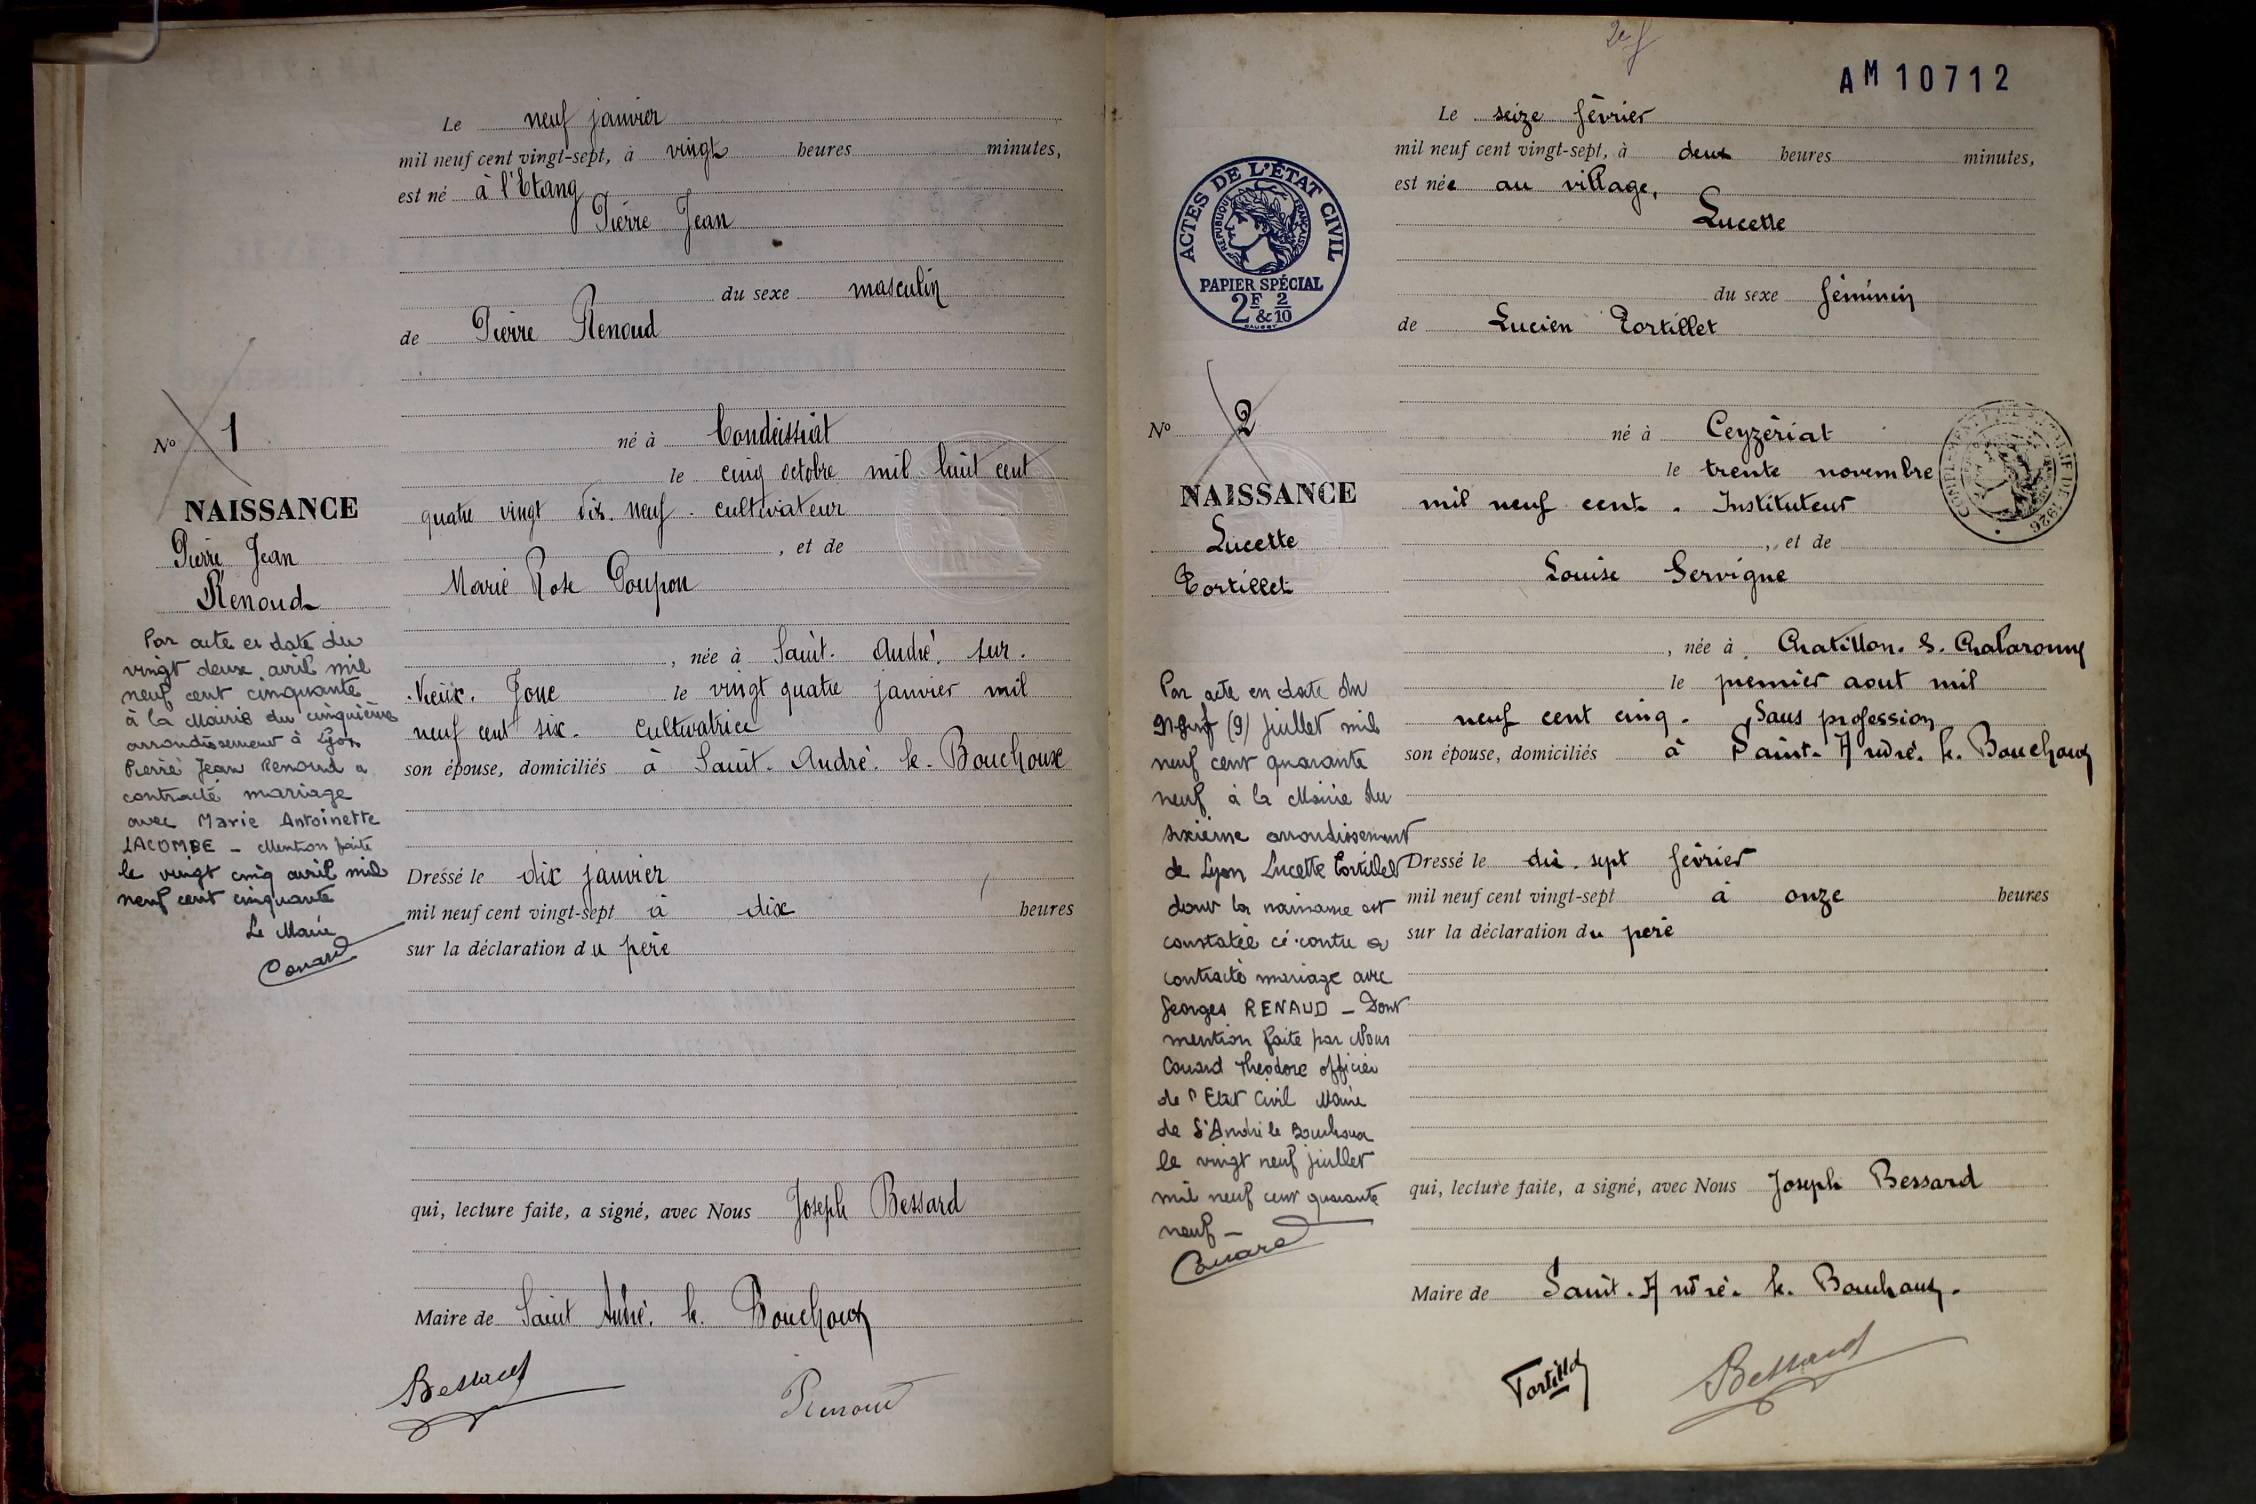 Le neuf janvier
mil neuf cent vingt-sept, à vingt heures minutes,
est né à l'Etang
Pierre Jean
du sexe masculin
de Pierre Renoud
né à Condeissiat
le cinq octobre mil huit cent
quatre vingt dix. neuf. cultivateur
, et de
Marie Rose Poupon
, née à Saint. André. sur.
Vieux. Jonc le vingt quatre janvier mil
neuf cent six. Cultivatrice
son épouse, domiciliés à Saint. André. le. Bouchoux
Dressé le dix janvier
mil neuf cent vingt-sept à dix heures
sur la déclaration du père
qui, lecture faite, a signé, avec Nous Joseph Bessard
Maire de Saint André. le. Bouchoux
Bessard
Renoud
No 1
NAISSANCE
Pierre Jean
Renoud
Par acte en date du
vingt deux avril mil
neuf cent cinquante
à la Mairie du cinquième
arrondissement à Lyon
Pierre Jean Renoud a
contracté mariage
avec Marie Antoinette
LACOMBE - Mention faite
le vingt cinq avril mil
neuf cent cinquante
Le Maire
Couard
AM 10712
Le seize février
mil neuf cent vingt-sept, à deux heures minutes,
est née au village,
Lucette
du sexe féminin
de Lucien Tortillet
né à Ceyzériat
le trente novembre
mil neuf cent. Instituteur
, et de
Louise Servigne
, née à Chatillon. S. Chalaronne
le premier aout mil
neuf cent cinq. Sans profession
son épouse, domiciliés à Saint. André. le. Bouchoux
Dressé le dix. sept février
mil neuf cent vingt-sept à onze heures
sur la déclaration du père
qui, lecture faite, a signé, avec Nous Joseph Bessard
Maire de Saint. André. le. Bouchoux.
Tortillet
Bessard
ACTES DE L'ÉTAT CIVIL
RÉPUBLIQUE FRANÇAISE
PAPIER SPÉCIAL
2F & 2/10
No 2
NAISSANCE
Lucette
Tortillet
Par acte en date du
neuf (9) juillet mil
neuf cent quarante
neuf à la Mairie du
sixième arrondissement
de Lyon Lucette Tortillet
dont la naissance est
constatée ci-contre a
contracté mariage avec
Georges RENAUD - Dont
mention faite par Nous
Couard Théodore officier
de l'Etat Civil Maire
de St André le Bouchoux
le vingt neuf juillet
mil neuf cent quarante
neuf -
Couard